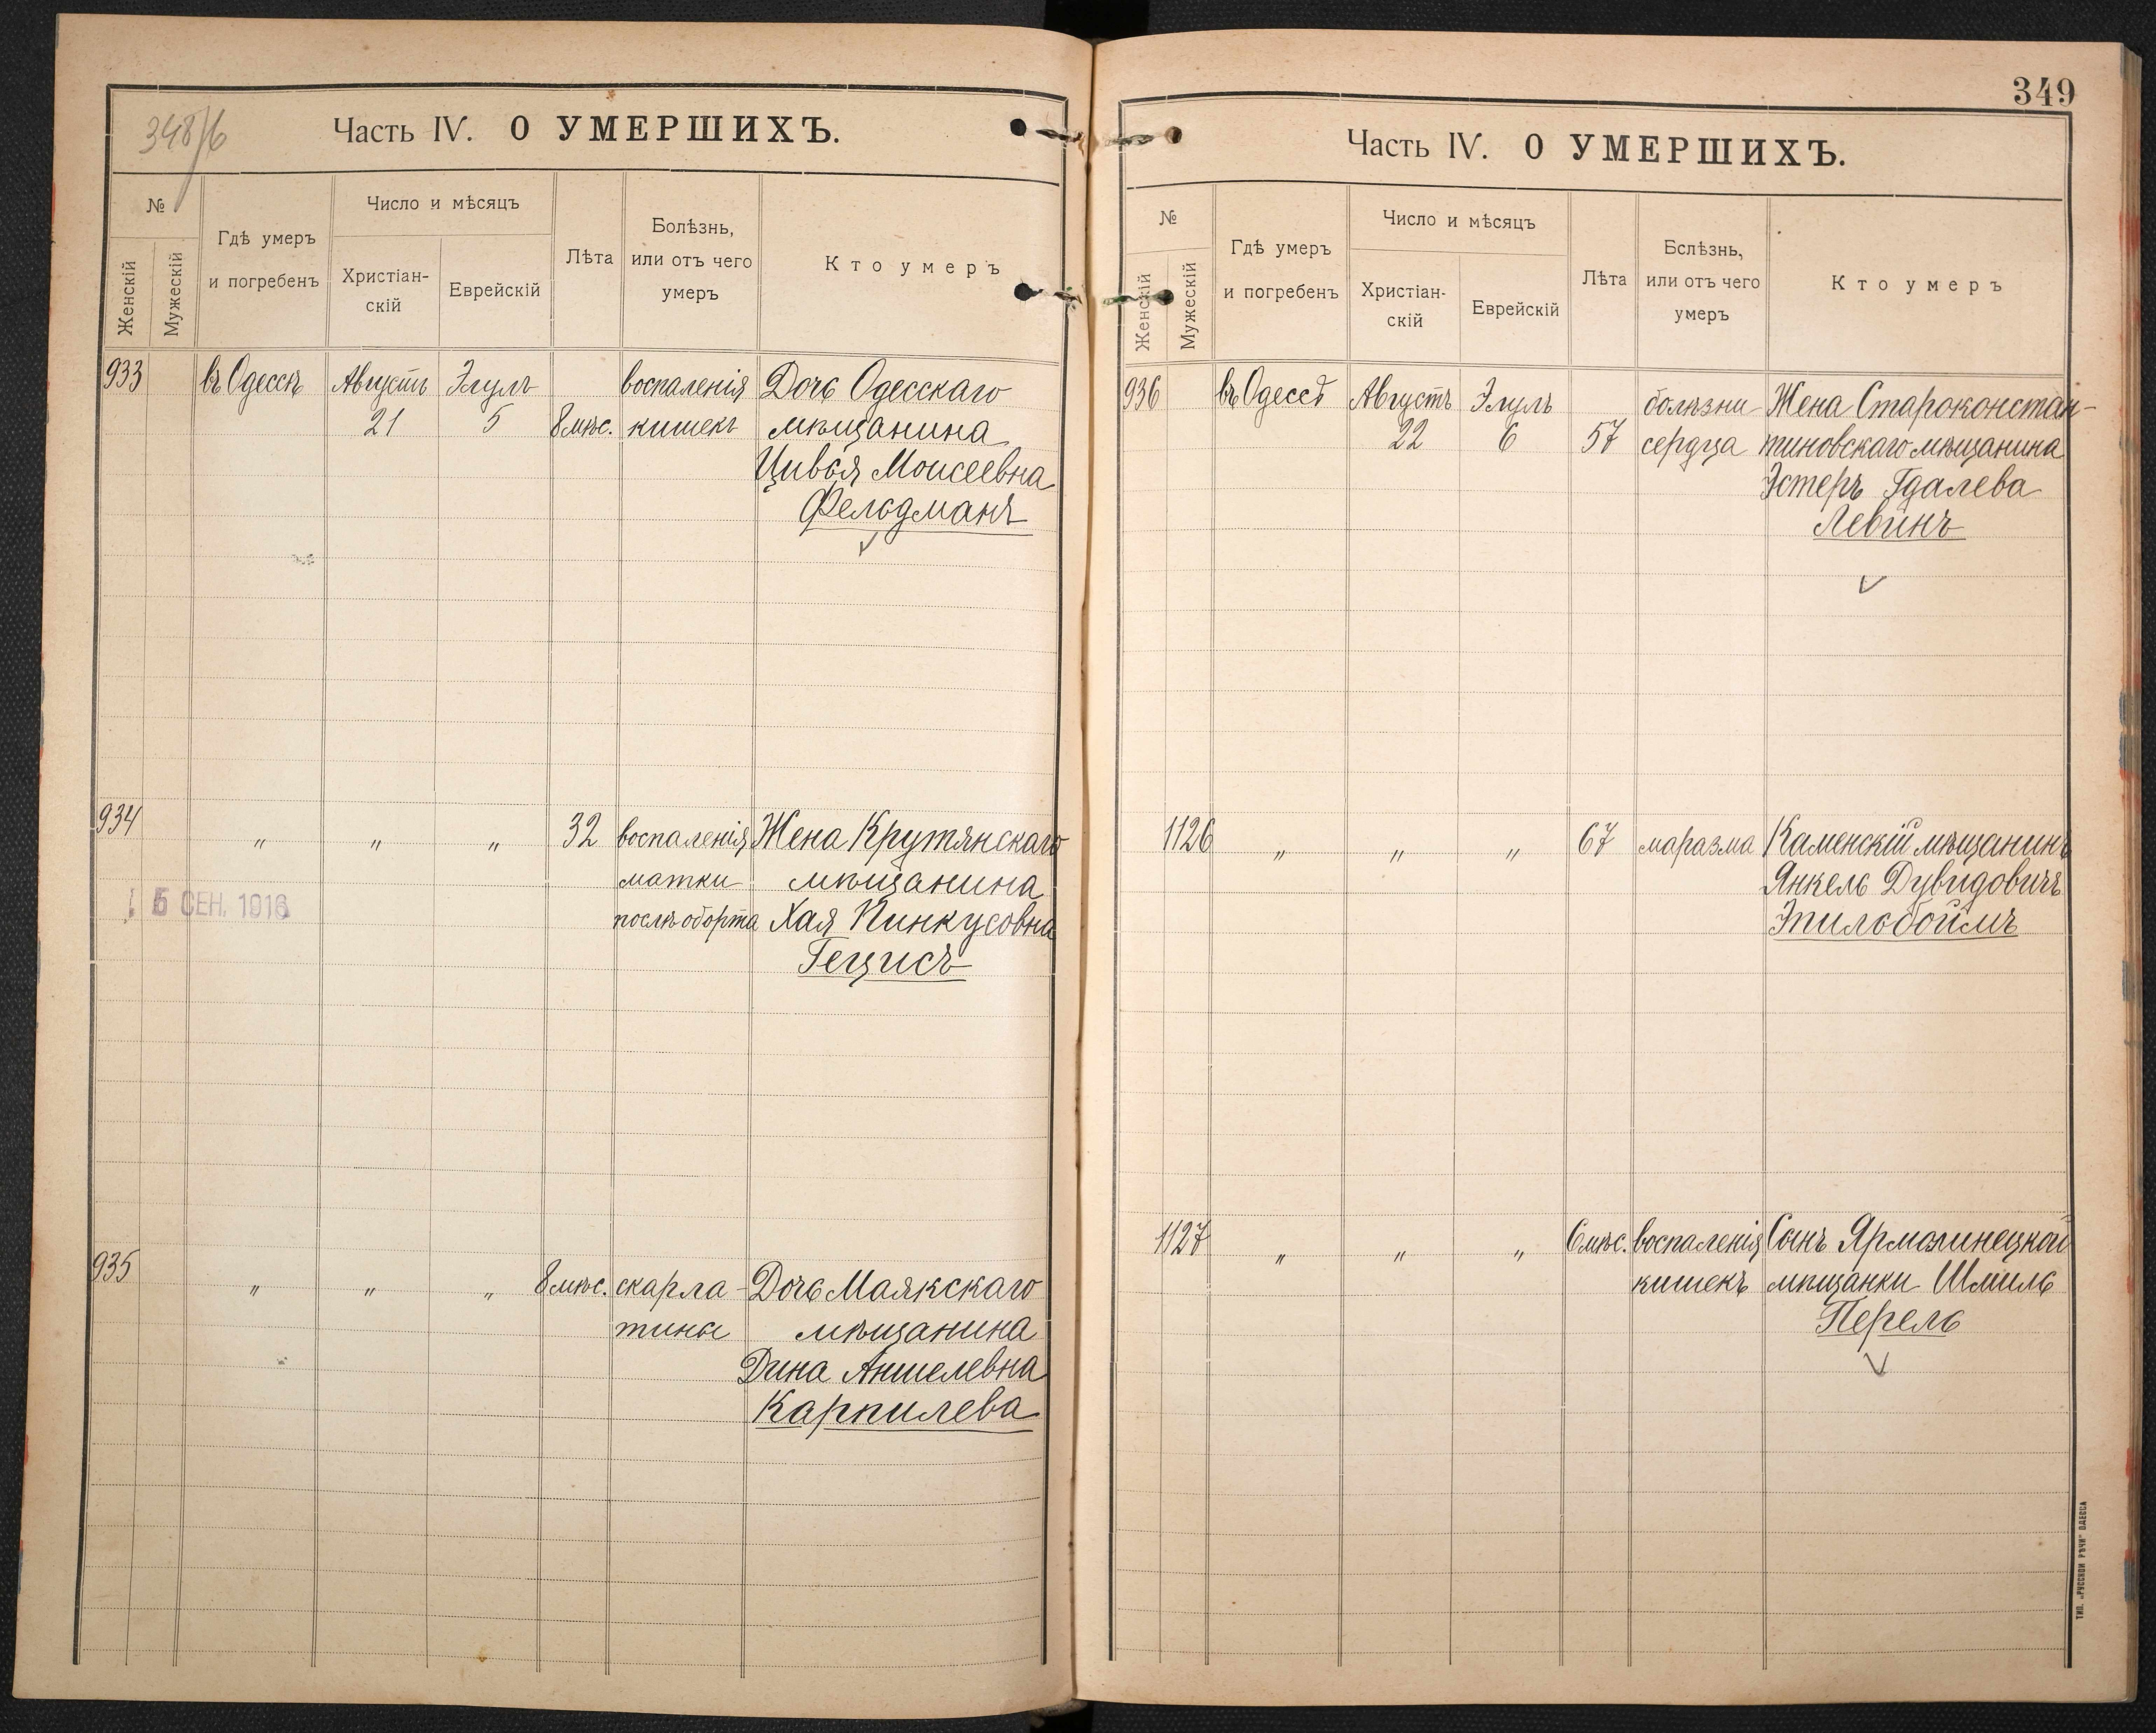 348/6
Часть IV. О УМЕРШИХЪ.
№
Женскій
Мужескій
Гдѣ умеръ
и погребенъ
Число и мѣсяцъ
Христіан-
скій
Еврейскій
Лѣта
Болѣзнь,
или отъ чего
умеръ
Кто умеръ
933 въ Одессѣ Августъ Элулъ воспаленія Дочь Одесскаго
21 5 8 мѣс. кишекъ мѣщанина
Цивья Моисеевна
Фельдманъ
934 " " " 32 воспаленія Жена Крутянскаго
матки мѣщанина
5 СЕН. 1916
послѣ оборта Хая Пинкусовна
Гецисъ
935 " " " 8 мѣс. скарла- Дочь Маякскаго
тины мѣщанина
Дина Аншелевна
Карпилева
349
Часть IV. О УМЕРШИХЪ.
№
Женскій
Мужескій
Гдѣ умеръ
и погребенъ
Число и мѣсяцъ
Христіан-
скій
Еврейскій
Лѣта
Бслѣзнь,
или отъ чего
умеръ
Кто умеръ
936 въ Одессѣ Августъ Элулъ болѣзни Жена Староконстан-
22 6 57 сердца тиновскаго мѣщанина
Эстеръ Гдалева
Левинъ
1126 " " " 67 маразма Каменскій мѣщанинъ
Янкель Дувидовичъ
Эпильбоймъ
1127 " " " 6 мѣс. воспаленія Сынъ Ярмолинецкой
кишекъ мѣщанки Шмиль
Перель
ТИП. „РУССКОЙ РѢЧИ" ОДЕССА